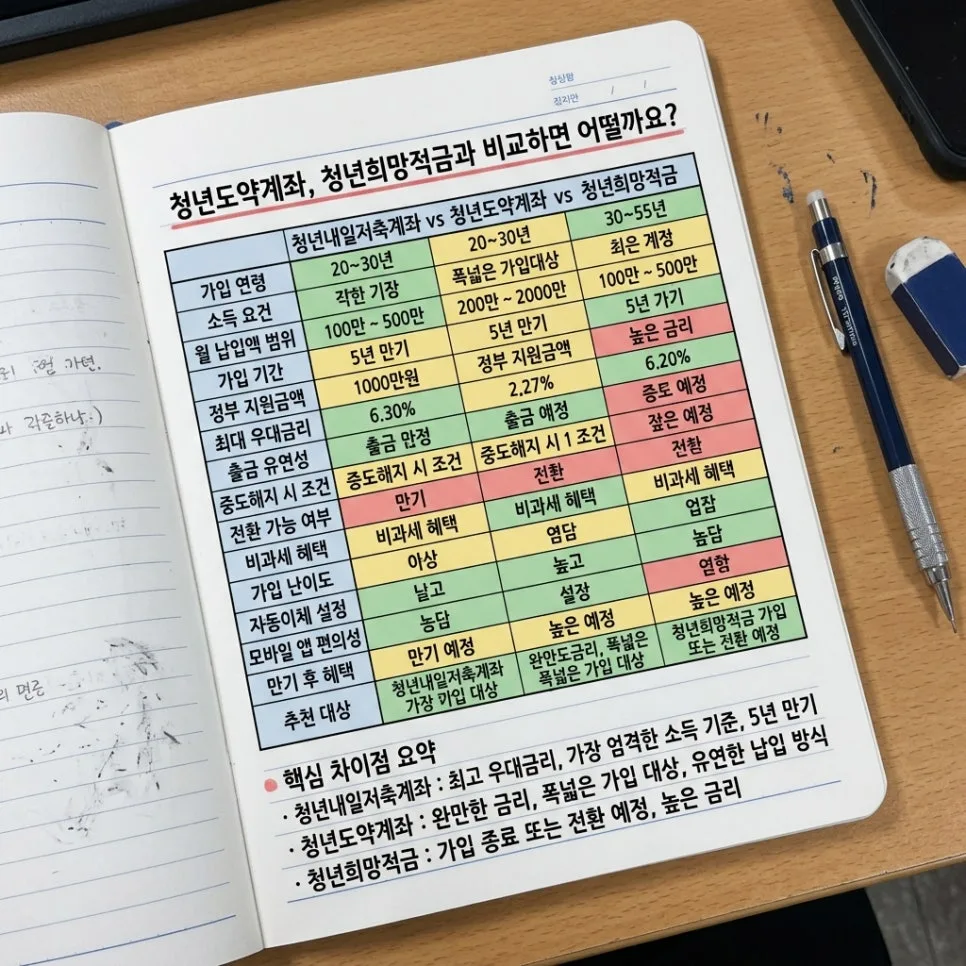 청년도약계좌, 청년희망적금과 비교하면 어떨까요?
청년내일저축계좌 vs 청년도약계좌 vs 청년희망적금
가입 연령 20~30년 20~30년 30~55년
소득 요건 각한 기장 폭넓은 가입대상 최은 계정
월 납입액 범위 100만 ~ 500만 200만 ~ 2000만 100만 ~ 500만
가입 기간 5년 만기 5년 만기 5년 가기
정부 지원금액 1000만원 정부 지원금액 높은 금리
최대 우대금리 6.30% 2.27% 6.20%
출금 유연성 출금 만정 출금 얘정 증로 예정
중도해지 시 조건 증도해지 시 조건 중도해지 시 1 조건 잦은 예정
전환 가능 여부 만기 전환 전홤
비과세 혜택 비과세 혜택 비과세 혜택 비과세 혜택
가입 난이도 아상 염담 업잡
자동이체 설정 날고 높고 농담
모바일 앱 편의성 농담 설정 연함
만기 후 혜택 만기 예정 높은 예정 높은 예정
추천 대상 청년내일저축계좌 완안도금리, 폭넓은 청년희망적금 가입
가장 가입 대상 폭넓은 가입 대상 또는 전환 예정
핵심 차이점 요약
· 청년내일저축계좌 : 최고 우대금리, 가장 엄격한 소득 기준, 5년 만기
· 청년도약계좌 : 완만한 금리, 폭넓은 가입 대상, 유연한 납입 방식
· 청년희망적금 : 가입 종료 또는 전환 예정, 높은 금리